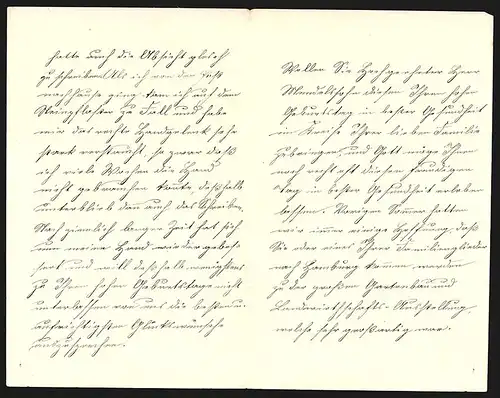 hatte auch die Absicht gleich
zu schreiben. Als ich von der
nachhause ging, kam ich auf dem
Steinpflaster zu Fall und habe
mir das rechte Handgelenk sehr
stark verstaucht, so zwar daß
ich viele Wochen die Hand
nicht gebrauchen konnte, deßhalb
unterblieb denn auch das Schreiben.
Nach ziemlich langer Zeit hat sich
nun meine Hand wieder gebes-
sert und will deßhalb wenigstens
zu Ihrem hohen Geburtstage nicht
unterlassen von uns die besten u.
aufrichtigsten Glückwünsche
auszusprechen.
Wollen Sie Hochgeehrter Herr
Mendelssohn diesen Ihren hohen
Geburtstag in bester Gesundheit
im Kreise Ihrer lieben Familie
zubringen, und Gott möge Ihnen
noch recht oft diesen freudigen
Tag in bester Gesundheit erleben
lassen. Vorigen Sommer hatten
wir immer einige Hoffnung, daß
Sie oder einer Ihrer Familienglieder
nach Hamburg kommen werden
zu der großen Gartenbau und
Landwirthschafts-Ausstellung,
welche sehr großartig war.